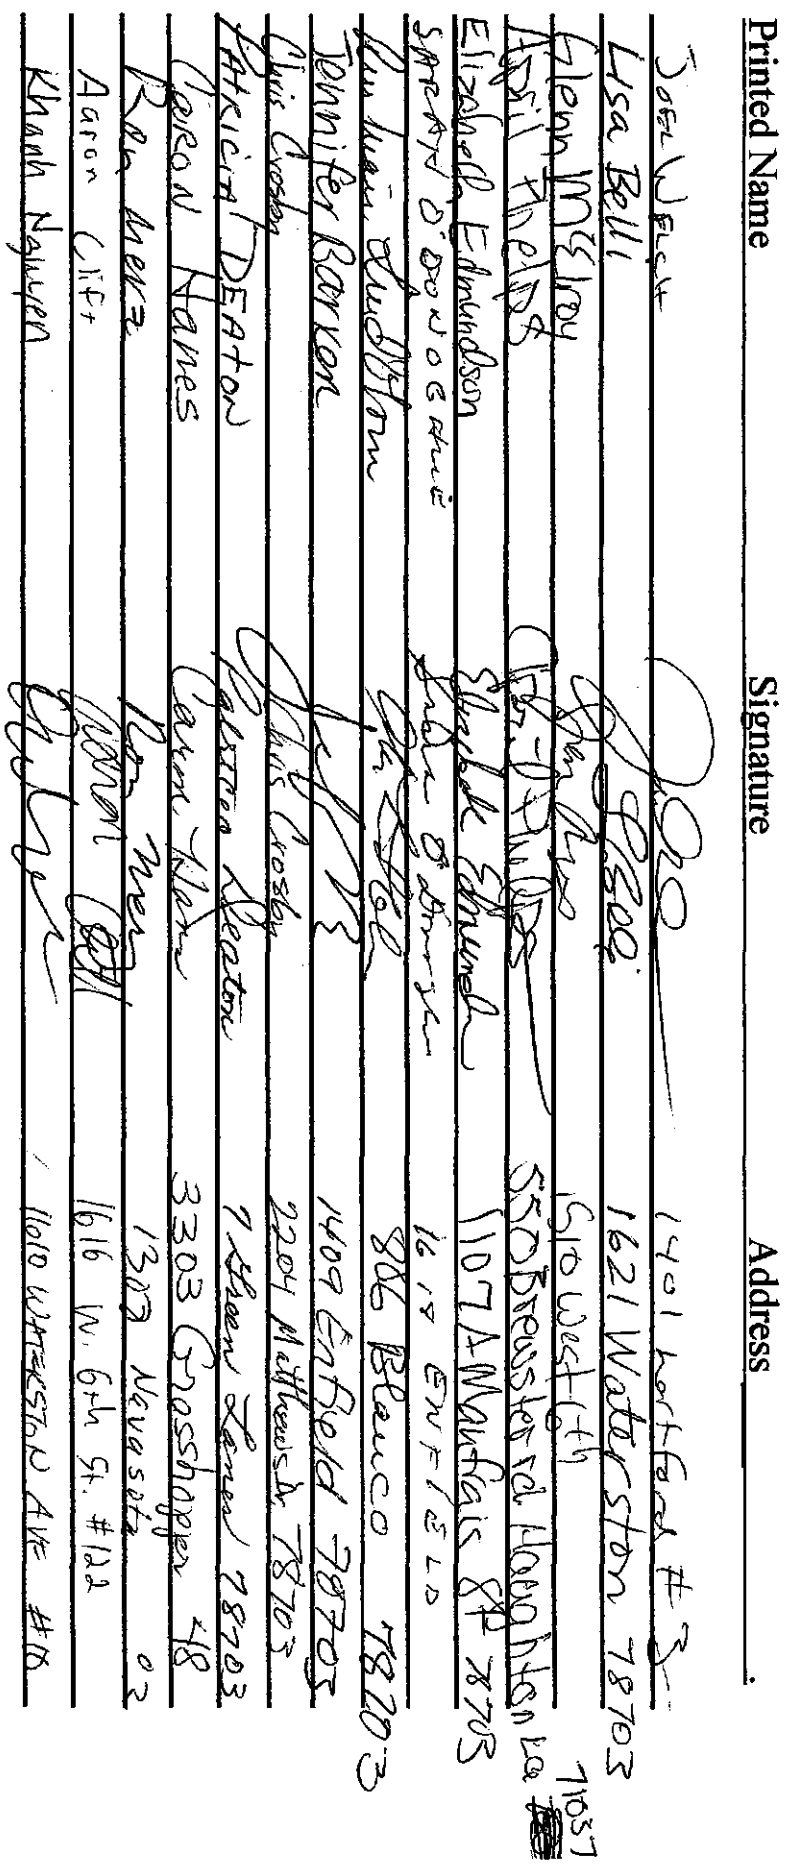 Printed Name Signature Address
John Welch 1401 hartford #3
Lisa Bell 1621 Waterston 78703
Glenn McElroy 1510 West 6th
April Phelps April Phelps 550 Brewster rd Haughton La 71037
Elizabeth Edmundson 1107A Maufrais St 78703
SARAH O'DONOGHUE 1618 ENFIELD
806 Blanco 78703
Jennifer Barron 1409 Enfield 78703
Chris Crosby Chris Crosby 2204 Matthews Dr 78703
PATRICIA DEATON Patricia Deaton 7 Green Lanes 78703
CARON HANES 3303 Grasshopper 48
Ron Merz Ron Merz 1303 Navasota 02
Aaron Clift 1616 W. 6th St. #122
Khanh Nguyen 1610 WATERSTON AVE #18